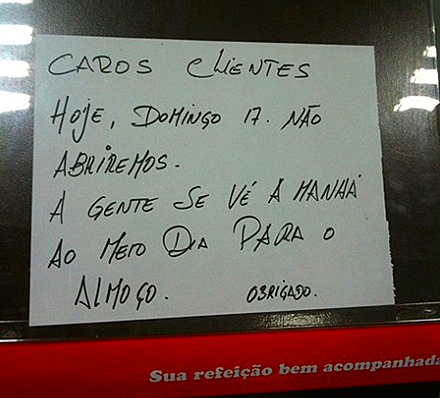 CAROS CLIENTES
HOJE, DOMINGO 17. NÃO
ABRIREMOS.
A GENTE SE VÊ A MANHÃ
AO MEIO DIA PARA O
ALMOÇO. OBRIGADO.
Sua refeição bem acompanhada